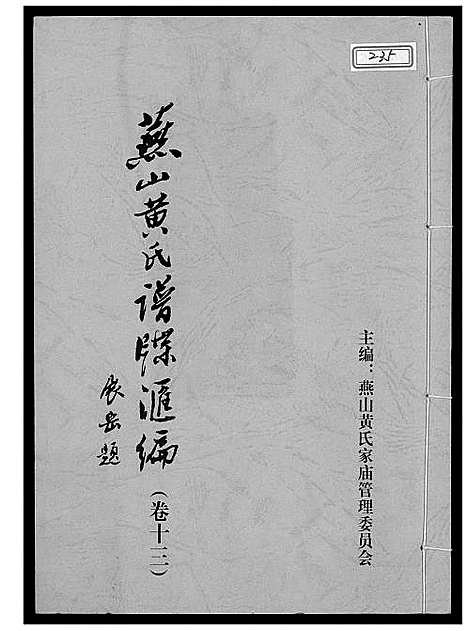 235
主编：燕山黄氏家庙管理委员会
燕山黄氏谱牒滙编
（卷十三）
岳题